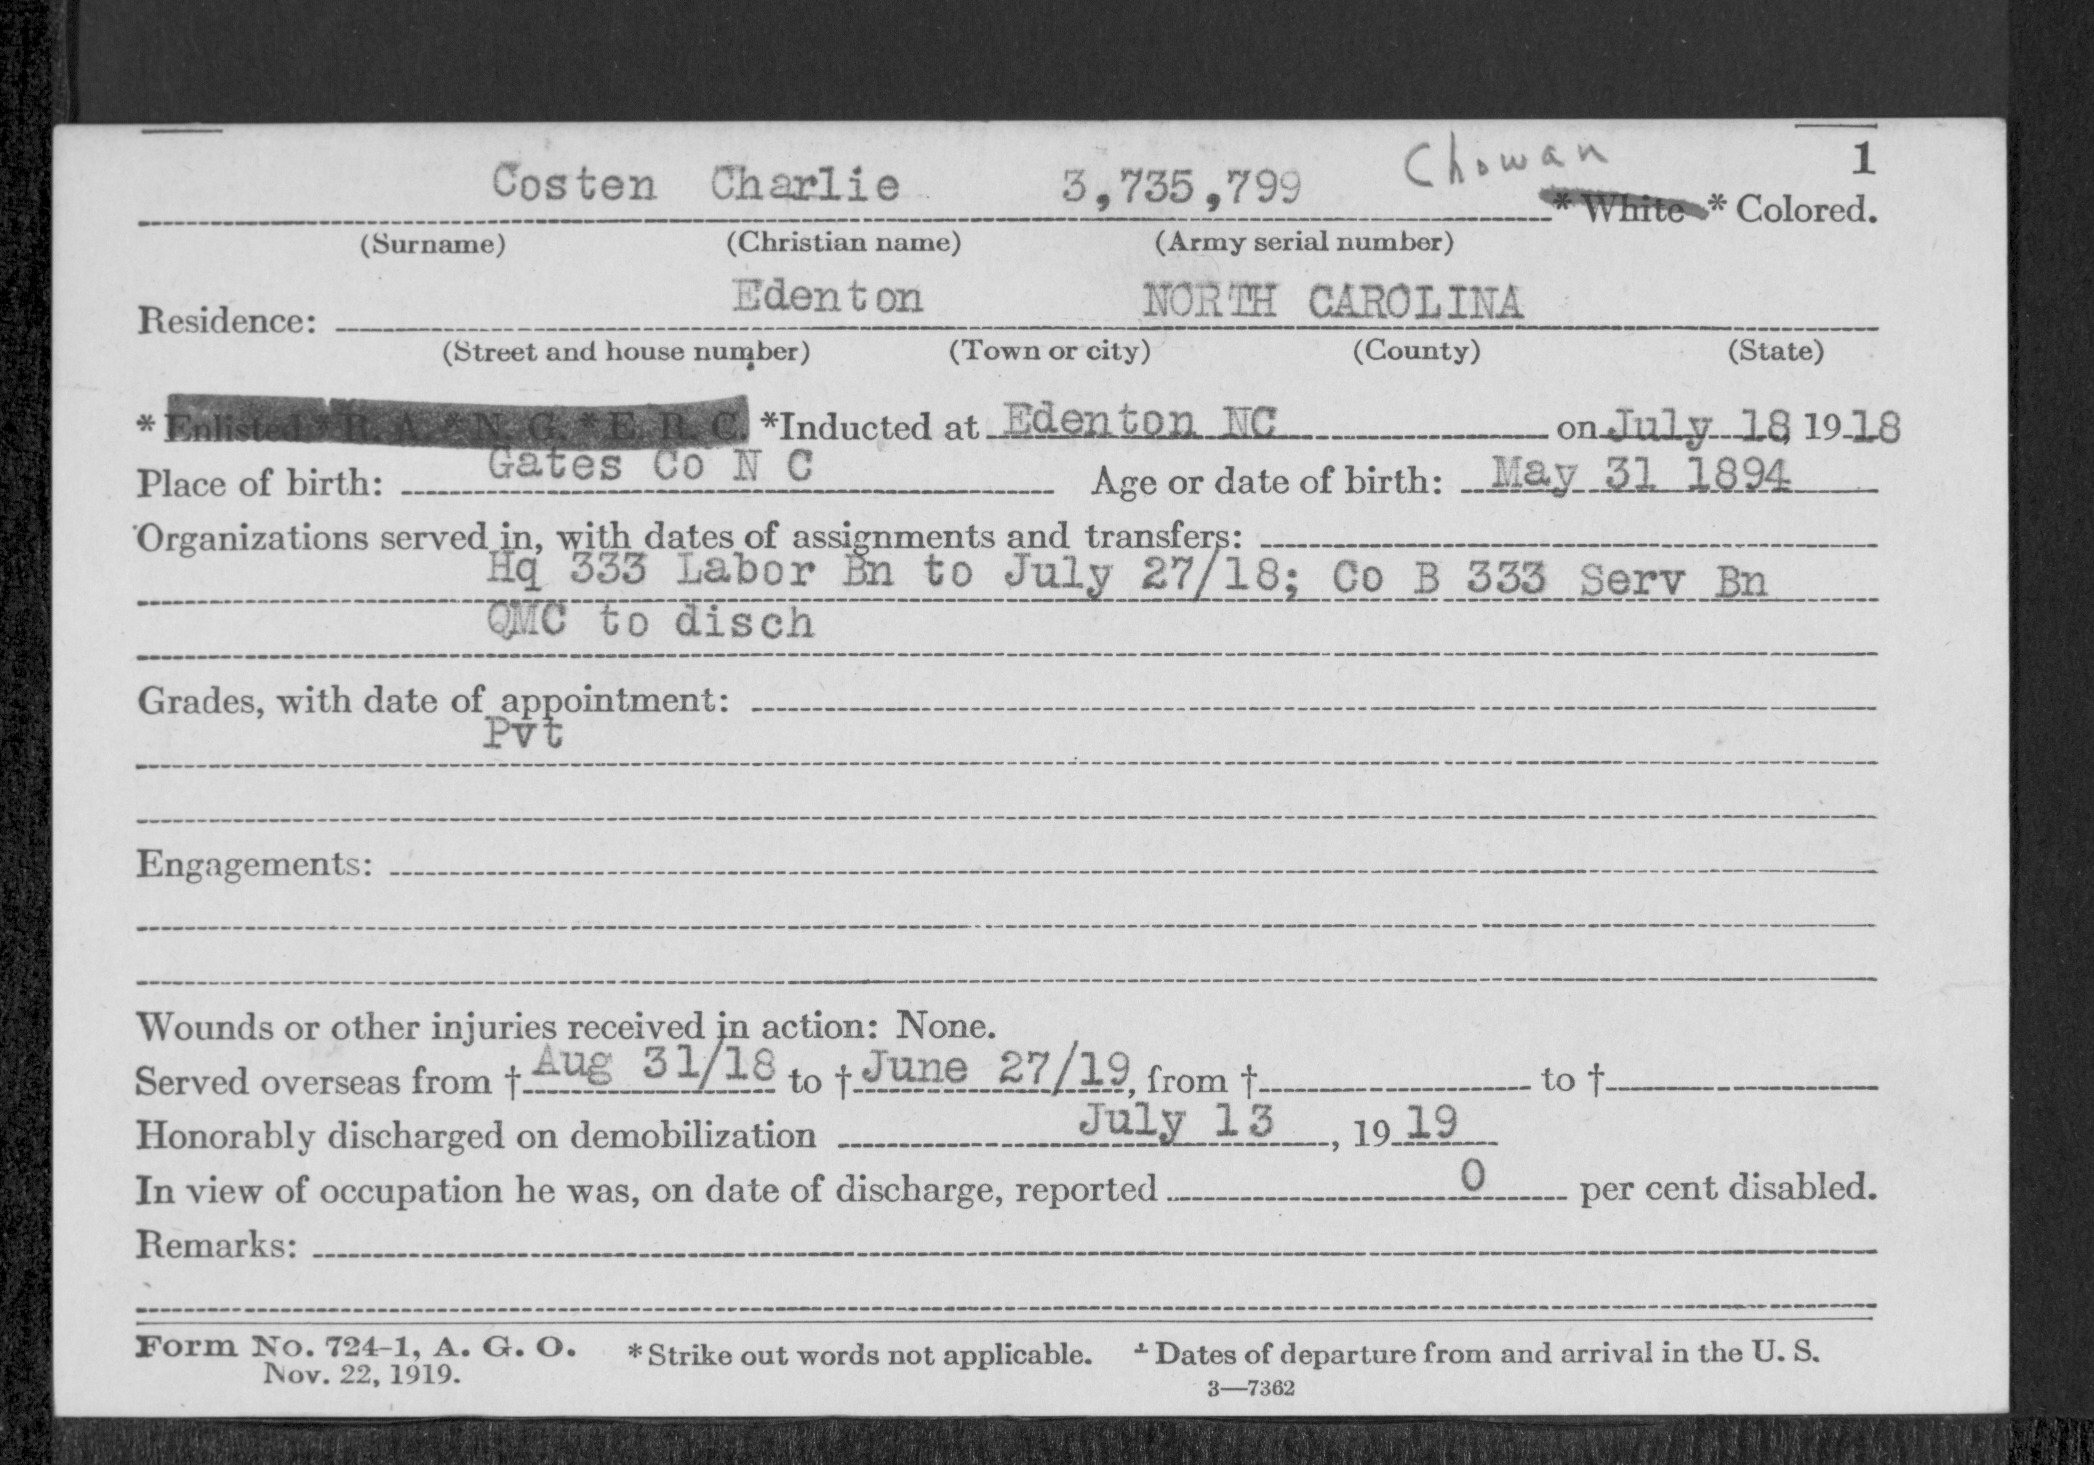 Chowan
1
Costen Charlie 3,735,799 * White * Colored.
(Surname) (Christian name) (Army serial number)
Residence: Edenton NORTH CAROLINA
(Street and house number) (Town or city) (County) (State)
* Enlisted * R. A. * N. G. * E. R. C. *Inducted at Edenton NC on July 18, 1918
Place of birth: Gates Co N C Age or date of birth: May 31 1894
Organizations served in, with dates of assignments and transfers:
Hq 333 Labor Bn to July 27/18; Co B 333 Serv Bn
QMC to disch
Grades, with date of appointment:
Pvt
Engagements:
Wounds or other injuries received in action: None.
Served overseas from † Aug 31/18 to † June 27/19, from † to †
Honorably discharged on demobilization July 13, 1919
In view of occupation he was, on date of discharge, reported 0 per cent disabled.
Remarks:
Form No. 724-1, A. G. O. * Strike out words not applicable. † Dates of departure from and arrival in the U. S.
Nov. 22, 1919. 3—7362